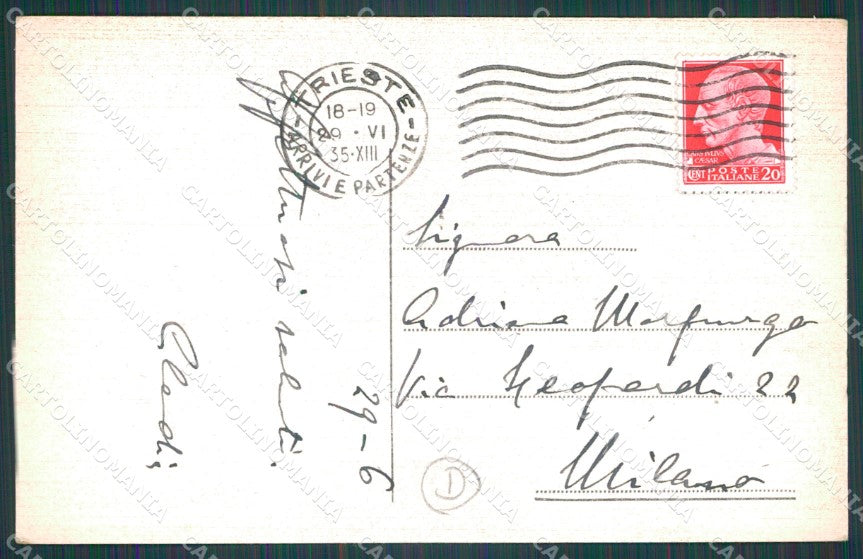 TRIESTE
18-19
29 · VI
35·XIII
ARRIVI E PARTENZE
IVLIVS
CAESAR
CENT POSTE ITALIANE 20
Affettuosi saluti.
29-6
Signora
Adriana Morpurgo
Via Leopardi 22
Milano
D
CARTOLINOMANIA